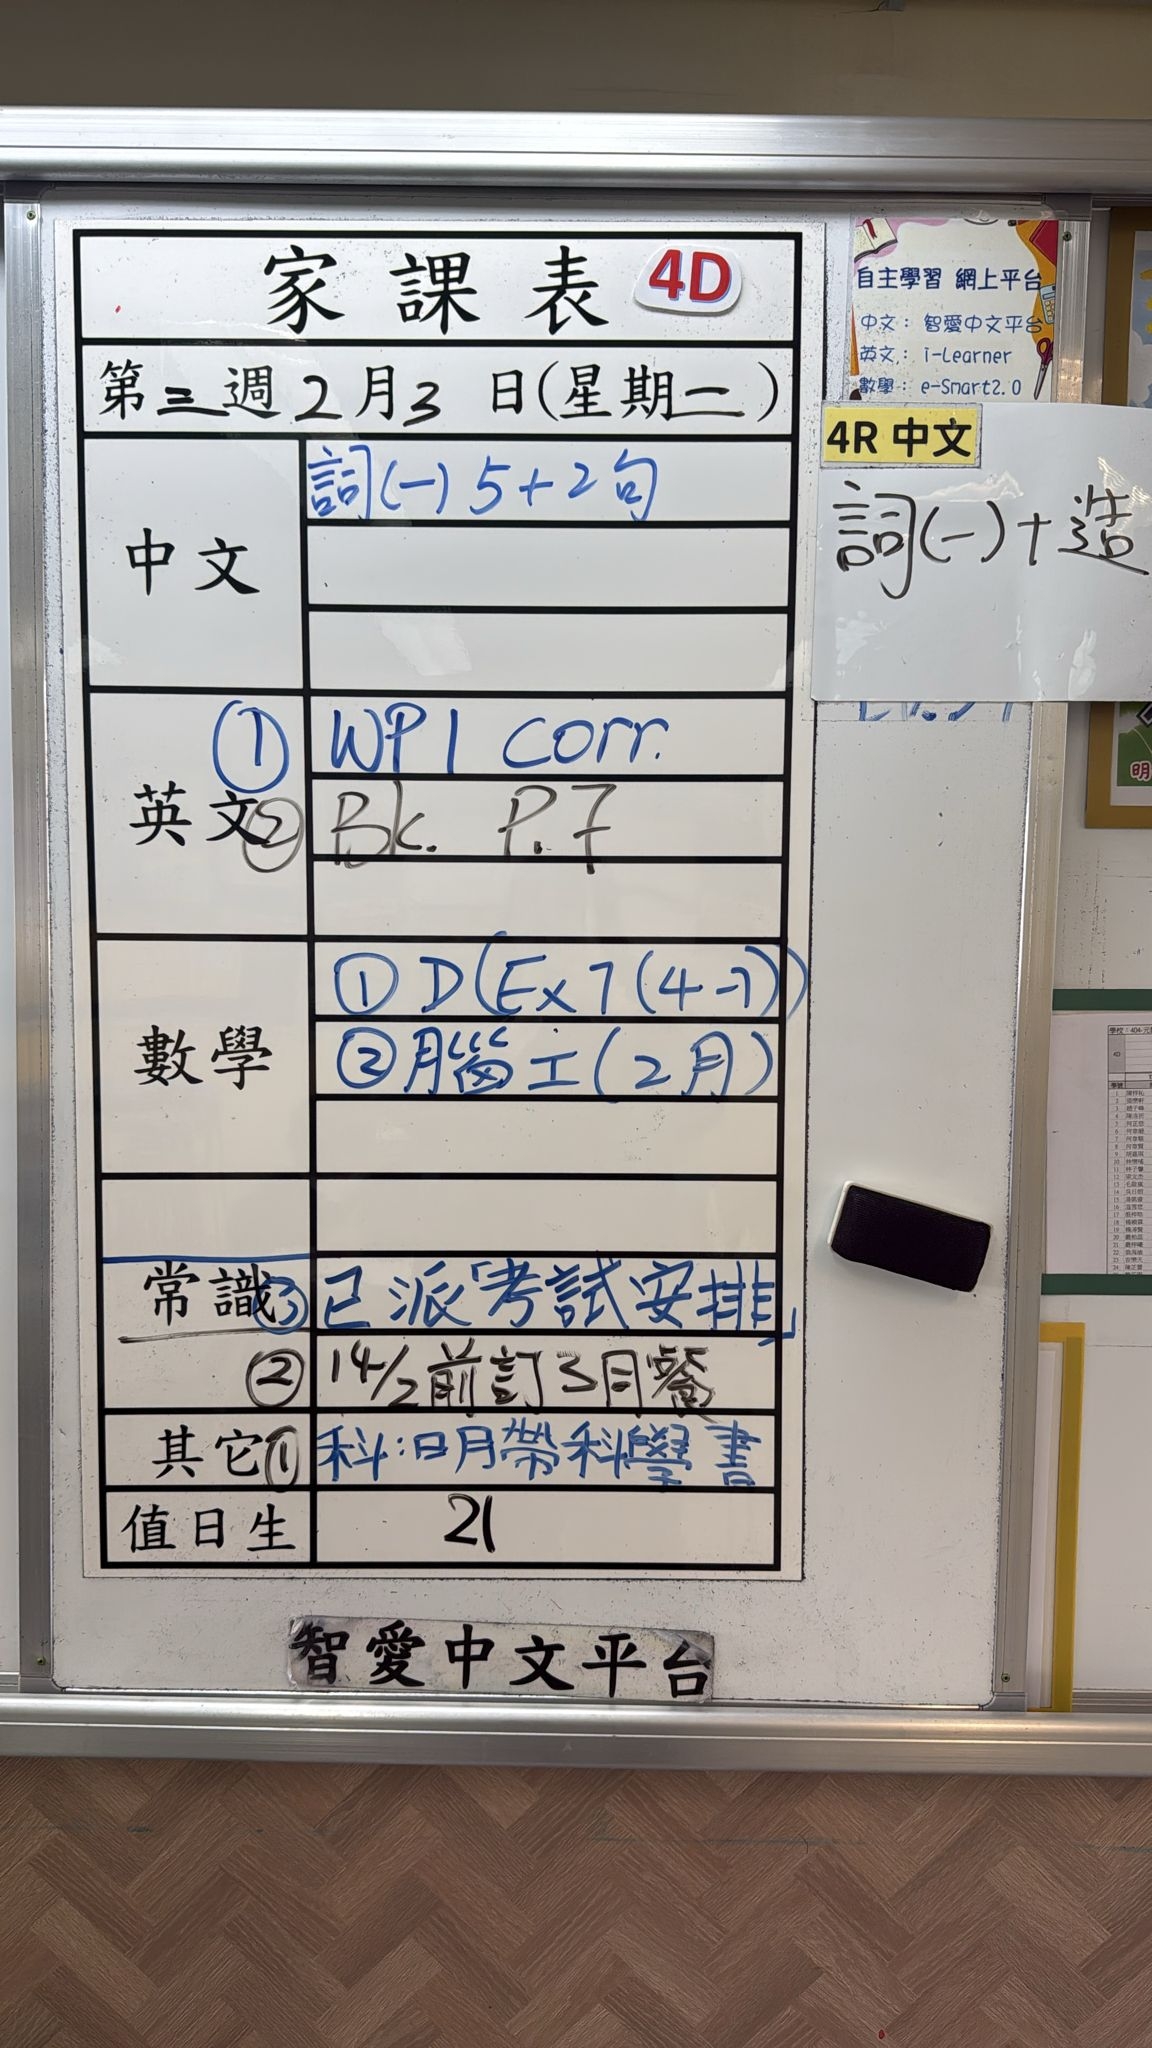 家課表 4D
第三週2月3日(星期二)
中文
詞(一) 5+2句
英文
① WP1 corr.
② Bk. P.7
數學
① D(Ex 7 (4-7))
②腦工(2月)
常識
③ 已派「考試安排」
② 14/2前訂3月餐
其它
① 科:日月帶科學書
值日生
21
智愛中文平台
自主學習 網上平台
中文: 智愛中文平台
英文: i-Learner
數學: e-Smart2.0
4R 中文
詞(一)+造